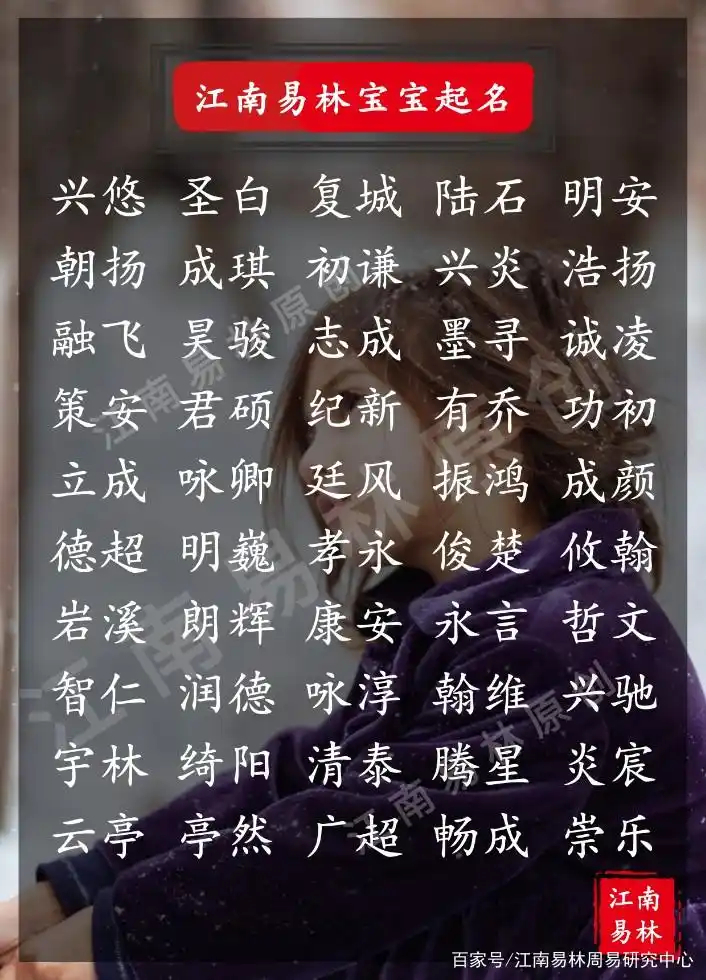 江南易林宝宝起名
兴悠 圣白 复城 陆石 明安
朝扬 成琪 初谦 兴炎 浩扬
融飞 昊骏 志成 墨寻 诚凌
策安 君硕 纪新 有乔 功初
立成 咏卿 廷风 振鸿 成颜
德超 明巍 孝永 俊楚 攸翰
岩溪 朗辉 康安 永言 哲文
智仁 润德 咏淳 翰维 兴驰
宇林 绮阳 清泰 腾星 炎宸
云亭 亭然 广超 畅成 崇乐
江南易林原创
江南易林原创
江南易林原创
江南
易林
百家号/江南易林周易研究中心